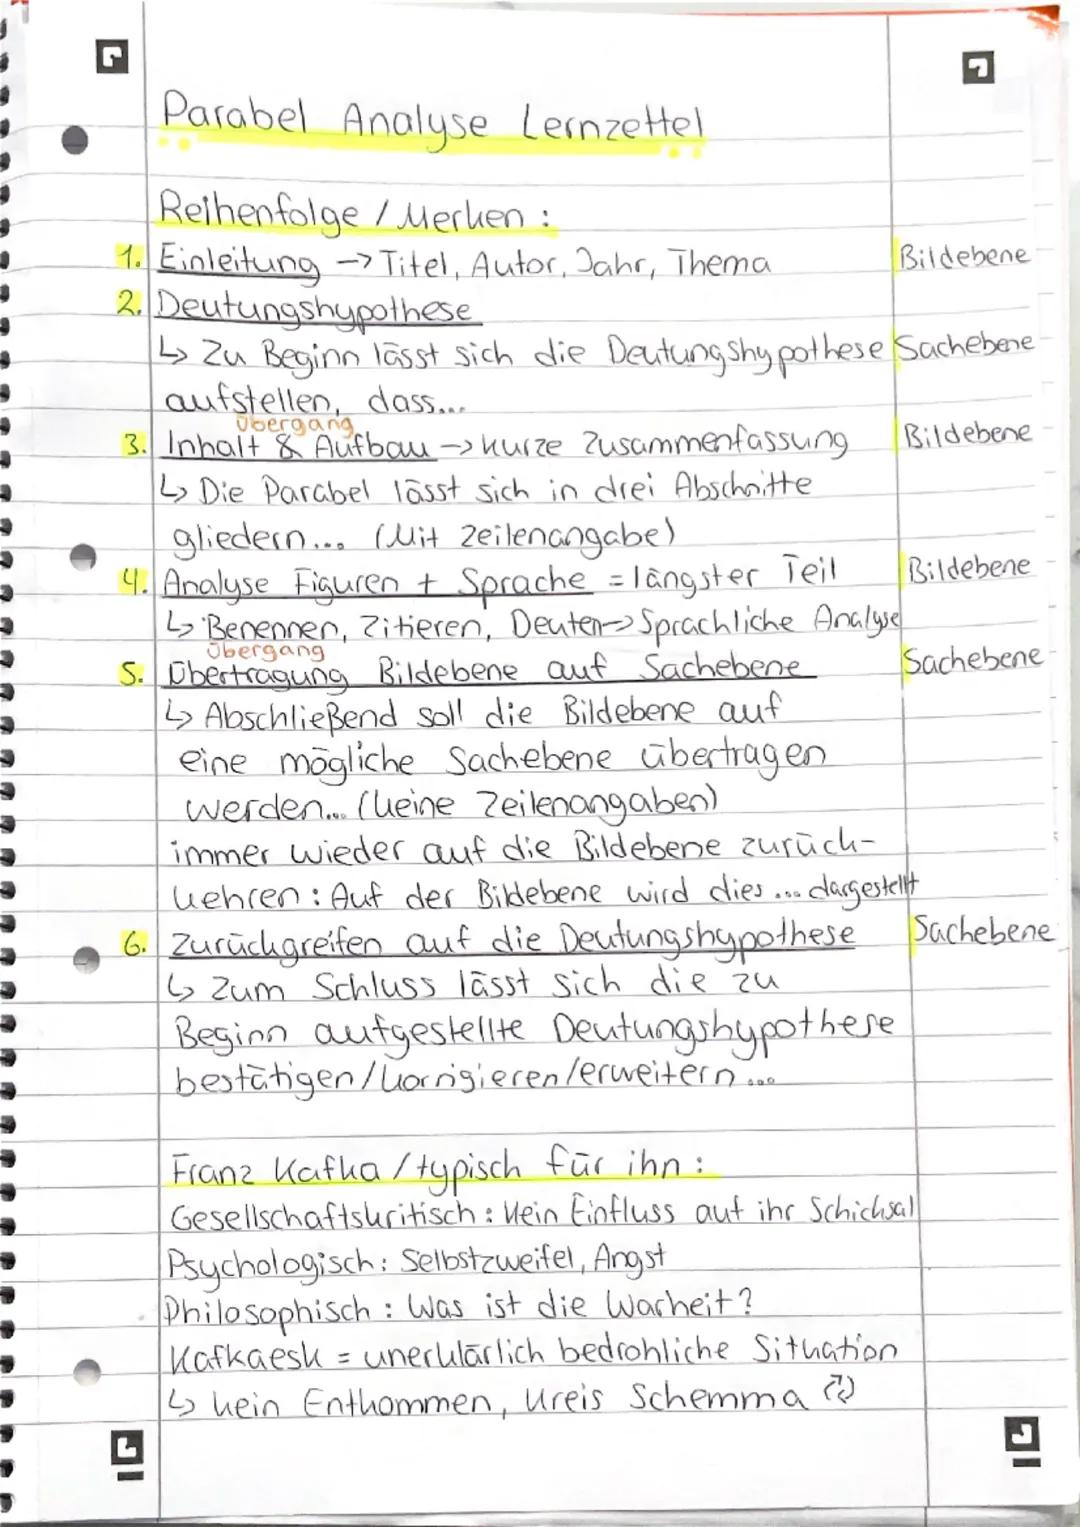 Parabel Analyse Lernzettel
Reihenfolge / Merken :
1. Einleitung -> Titel, Autor, Jahr, Thema Bildebene
2. Deutungshypothese
↳ Zu Beginn lässt sich die Deutungshypothese Sachebene
aufstellen, dass...
Übergang
3. Inhalt & Aufbau -> kurze Zusammenfassung Bildebene
↳ Die Parabel lässt sich in drei Abschnitte
gliedern... (Mit Zeilenangabe)
4. Analyse Figuren + Sprache = längster Teil Bildebene
↳ Benennen, Zitieren, Deuten -> Sprachliche Analyse
Übergang
5. Übertragung Bildebene auf Sachebene Sachebene
↳ Abschließend soll die Bildebene auf
eine mögliche Sachebene übertragen
werden... (keine Zeilenangaben)
immer wieder auf die Bildebene zurück-
kehren : Auf der Bildebene wird dies ... dargestellt
6. Zurückgreifen auf die Deutungshypothese Sachebene
↳ Zum Schluss lässt sich die zu
Beginn aufgestellte Deutungshypothese
bestätigen/korrigieren/erweitern ...
Franz Kafka / typisch für ihn :
Gesellschaftskritisch : kein Einfluss auf ihr Schicksal
Psychologisch : Selbstzweifel, Angst
Philosophisch : Was ist die Warheit ?
Kafkaesk = unerklärlich bedrohliche Situation
↳ kein Entkommen, Kreis Schemma